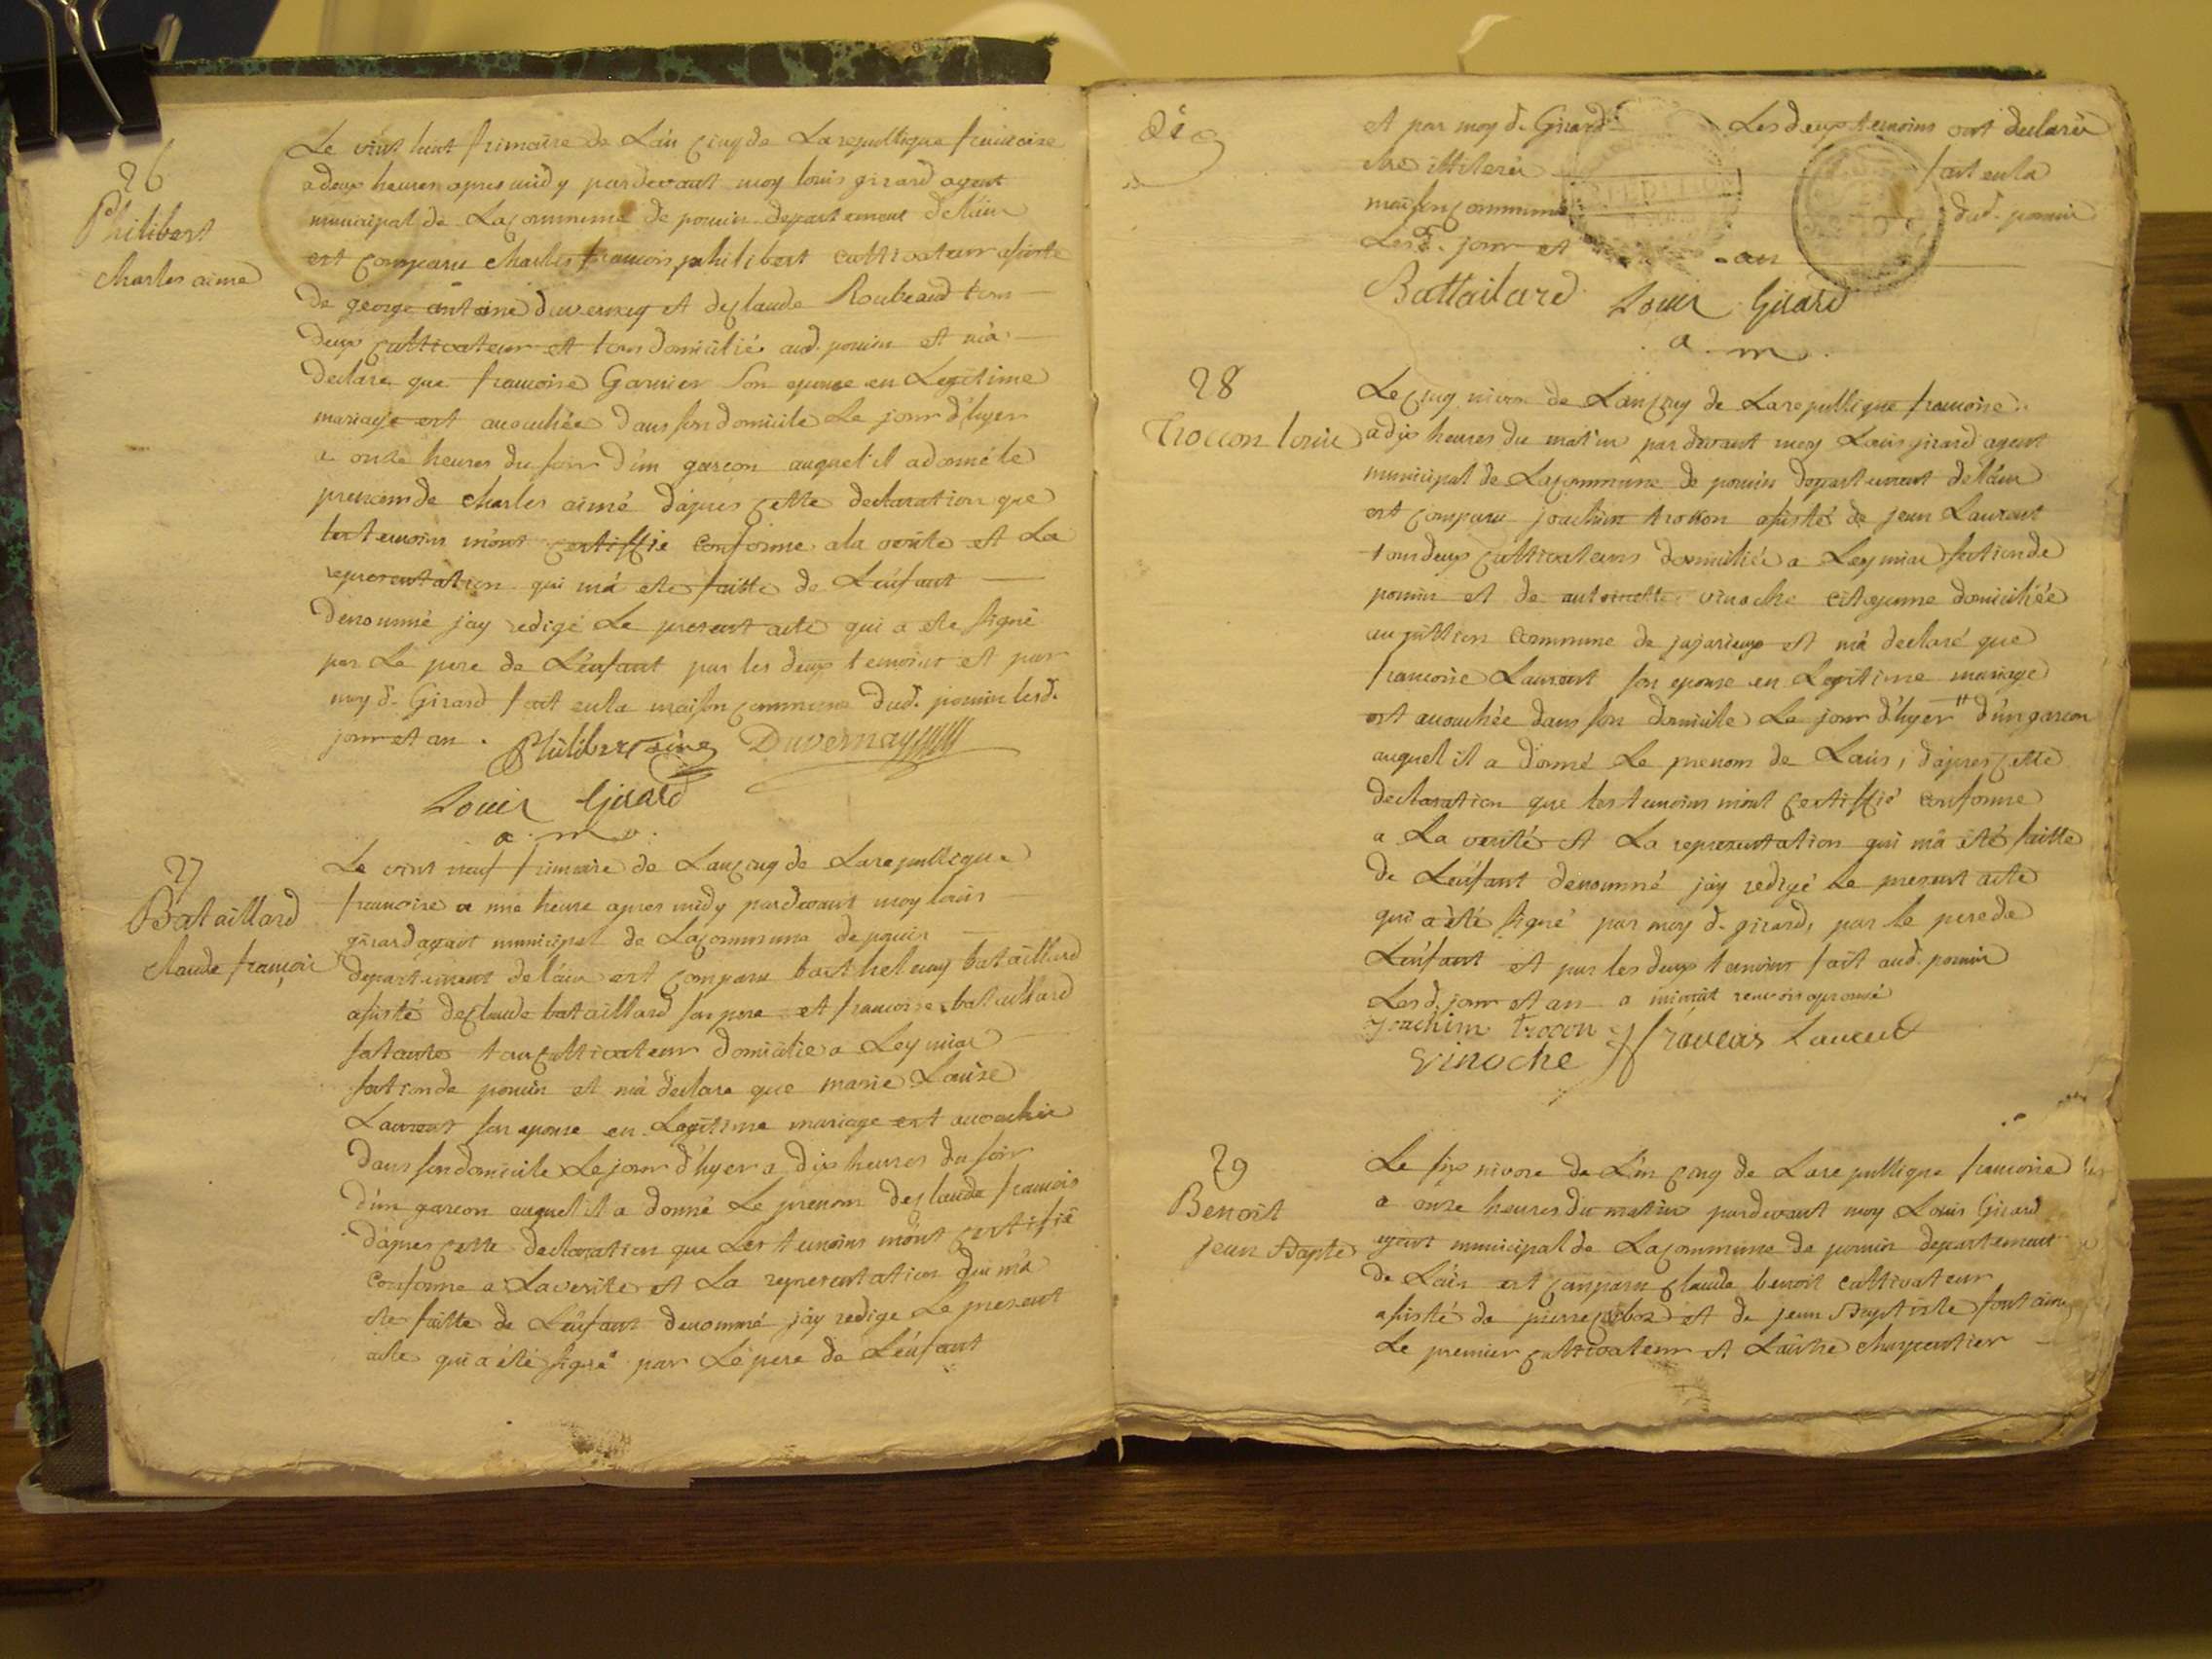 26
Philibert
charles aimé
Le vint huit frimaire de L'an cinq de La republique francoise
a deux heures apres midy pardevant moy louis girard agent
municipal de La commune de poncin departement de l'ain
est comparu charles francois philibert cultivateur assisté
de george antoine duvernay et de claude Roubeaud tous
deux cultivateur et tous domicilié aud. poncin et m'a
declare que francoise Garnier son epouse en Legitime
mariage est accouchée dans son domicile Le jour d'hyer
a onze heures du soir d'un garcon auquel il a donné le
prenom de charles aimé d'apres cette declaration que
les temoins m'ont certiffié conforme a la verite et La
representation qui m'a ete faitte de L'enfant
denommé j'ay redigé Le present acte qui a ete signé
par Le pere de L'enfant par les deux temoins et par
moy d. Girard fait en la maison commune dud. poncin lesd.
jour et an . Philibert aine Duvernay
Louis Girard
a. m.
27
Bataillard
claude françois
Le vint neuf frimaire de L'an cinq de La republique
francoise a une heure apres midy pardevant moy louis
girard agent municipal de La commune de poncin
departement de l'ain est comparu barthelemy bataillard
assisté de claude bataillard son pere et francoise bataillard
sa tante tous cultivateur domicilié a Leymiat
section de poncin et m'a declare que marie Louise
Laurent son epouse en Legitime mariage est accouchée
dans son domicile Le jour d'hyer a dix heures du soir
d'un garcon auquel il a donné Le prenom de claude francois
d'apres cette declaration que Les temoins m'ont certifié
conforme a La verite et La representation qui m'a
ete faitte de L'enfant denommé j'ay redige Le present
acte qui a été signé par Le pere de L'enfant
et par moy d. Girard Les deux temoins ont declaré
etre illiteré fait en la
maison commune dud. poncin
Lesd. jour et an
Battailard Louis Girard
a. m.
28
Trocon louis
Le cinq nivose de L'an cinq de La republique francoise
a dix heures du matin pardevant moy Louis girard agent
municipal de La commune de poncin departement de l'ain
est comparu joachim trocon assisté de jean Laurent
tous deux cultivateurs domicilié a Leymiat section de
poncin et de antoinette vinoche citoyenne domiciliée
au commune de jujurieux et m'a declaré que
francoise Laurent son epouse en Legitime mariage
est accouchée dans son domicile Le jour d'hyer # d'un garcon
auquel il a donné Le prenom de Louis, d'apres cette
declaration que les temoins m'ont certiffié conforme
a La verité et La representation qui m'a été faitte
de L'enfant denommé j'ay redigé Le present acte
qui a été signé par moy d. girard, par le pere de
L'enfant et par les deux temoins fait aud. poncin
Lesd. jour et an # a minuit renvois aprouvé
Joachim trocon francois Laurent
Vinoche
29
Benoit
jean Bapte
Le six nivose de L'an cinq de La republique francoise
a onze heures du matin pardevant moy Louis Girard
agent municipal de La commune de poncin departement
de L'ain est comparu claude benoit cultivateur
assisté de pierre et de jean Baptiste fontaine
Le premier cultivateur et L'autre charpentier